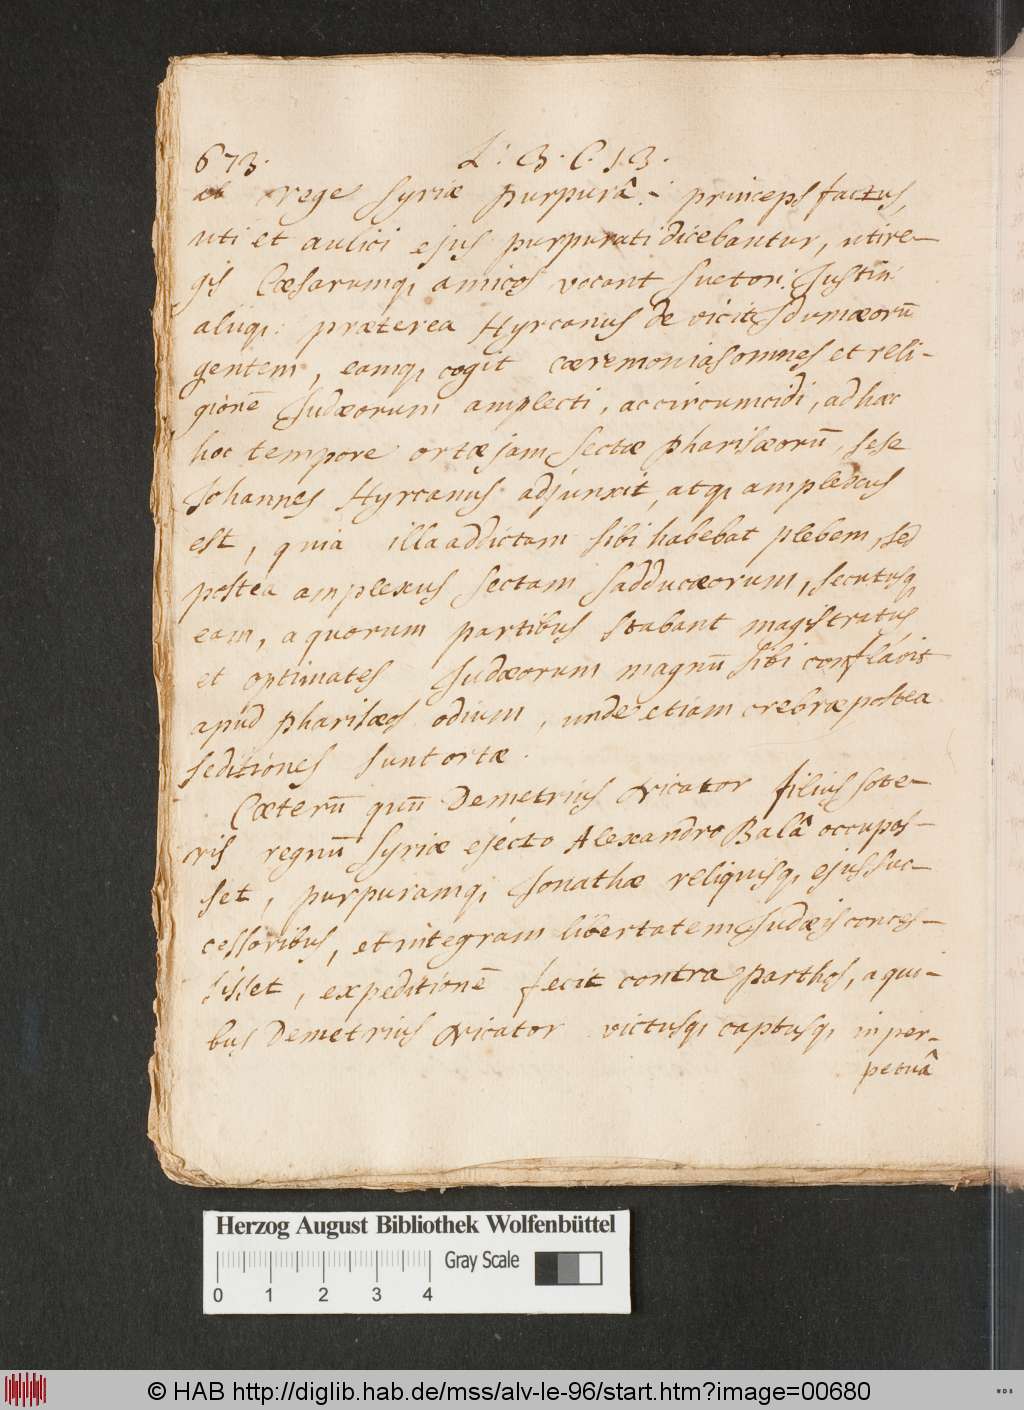 673. L: 3. C. 13.
ab rege Syriæ purpurâ princeps factus,
uti et aulici ejus purpurati dicebantur, uti re-
gis Cæsarumq, amicos vocant Sueton: Justin:
aliiq: præterea Hyrcanus de vicit Idumæorū
gentem, eamq, cogit cæremonias omnes et reli-
gionē Judæorum amplecti, ac circumcidi, ad hæc
hoc tempore ortæ jam sectæ pharisæorū, sese
Johannes Hyrcanus adjunxit, atq, amplexus
est, quia illa addictam sibi habebat plebem, sed
postea amplexus sectam Sadducæorum, secutusq,
eam, a quorum partibus stabant magistratus
et optimates Judæorum magnū sibi conflavit
apud pharisæos odium, unde etiam crebræ postea
seditiones sunt ortæ.
Cæterū quū Demetrius Nicator filius Sote-
ris regnū Syriæ ejecto Alexandro Balâ occupas-
set, purpuramq, Jonathæ reliquisq, ejus suc-
cessoribus, et integram libertatem Judæis conces-
sisset, expeditionē fecit contra Parthos, a qui-
bus Demetrius Nicator victusq, captusq, in per-
petuâ
Herzog August Bibliothek Wolfenbüttel
Gray Scale
0 1 2 3 4
© HAB http://diglib.hab.de/mss/alv-le-96/start.htm?image=00680